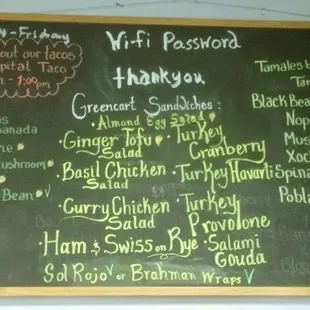 - Friday
out our tacos
pital Taco
1:00pm
anada
ushroom
Bean V
Wi-fi Password
thankyou
Greencart Sandwiches:
• Almond Egg Salad
• Ginger Tofu Salad
• Basil Chicken Salad
• Curry Chicken Salad
• Ham & Swiss on Rye
• Turkey Cranberry
• Turkey Havarti
• Turkey Provolone
• Salami Gouda
Sol Rojo V or Brahman Wraps V
Tamales b
Tam
Black Bea
Nop
Mus
Xoc
Spina
Pobla